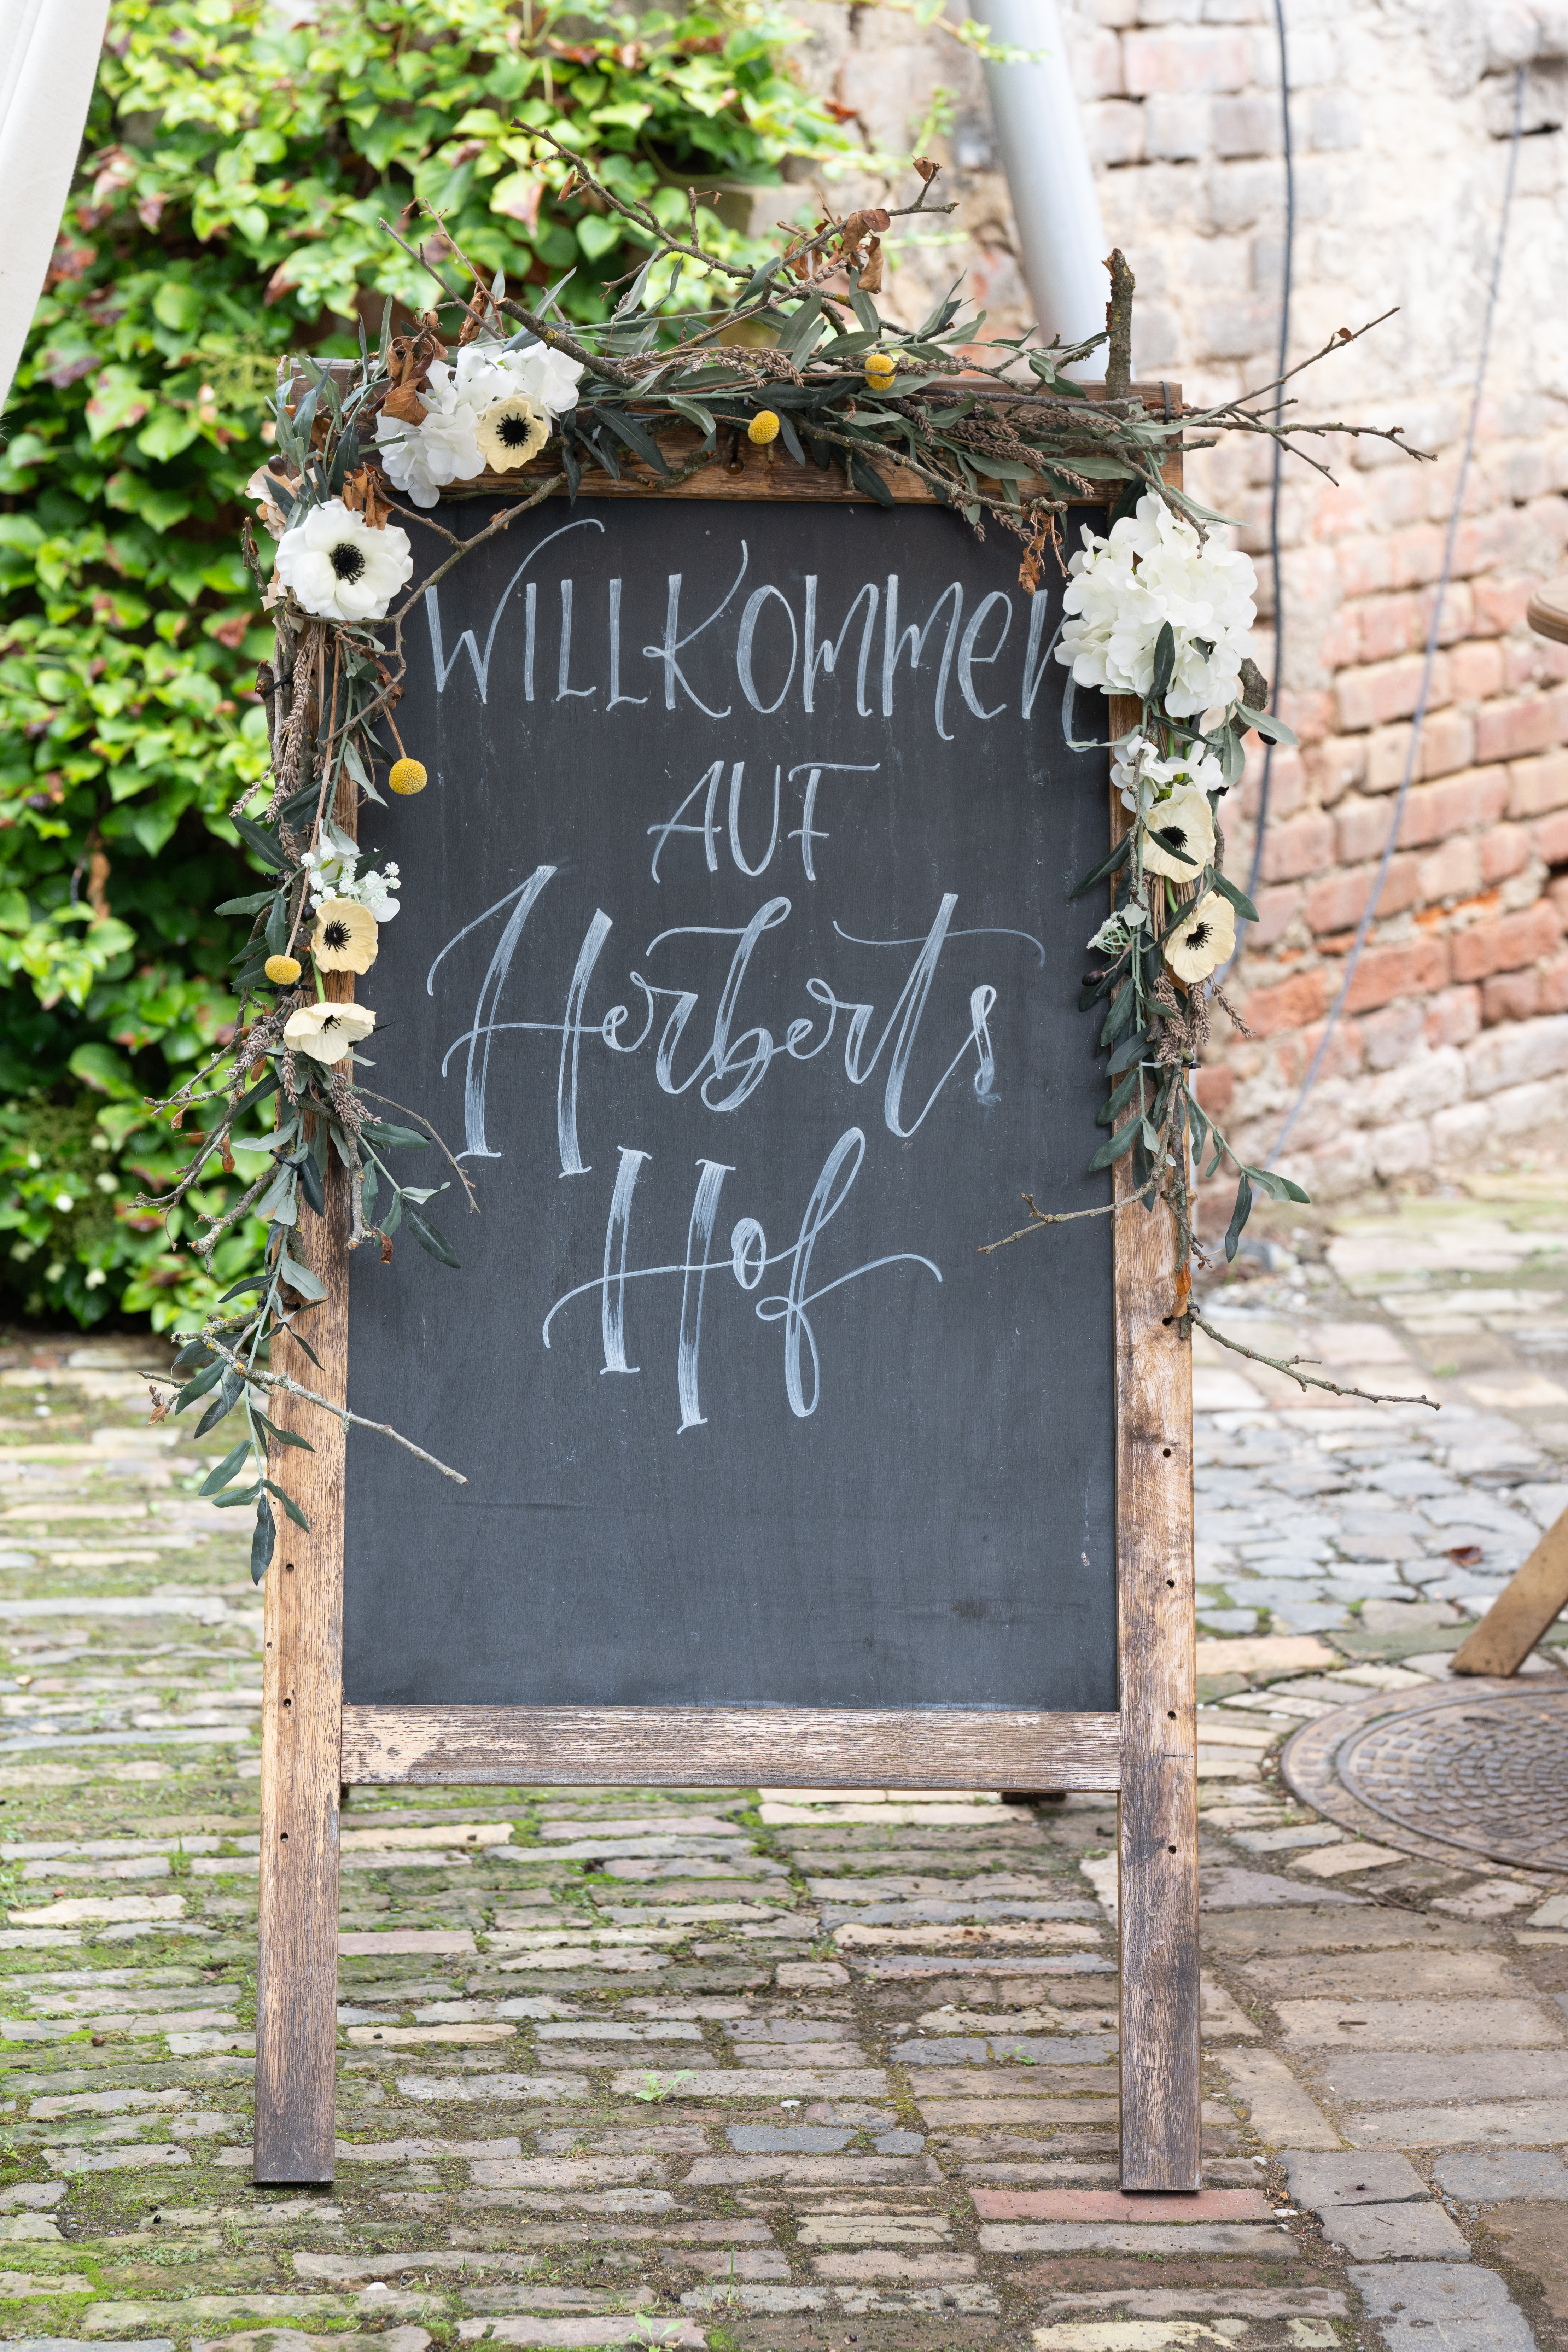 WILLKOMMEN
AUF
Herberts
Hof